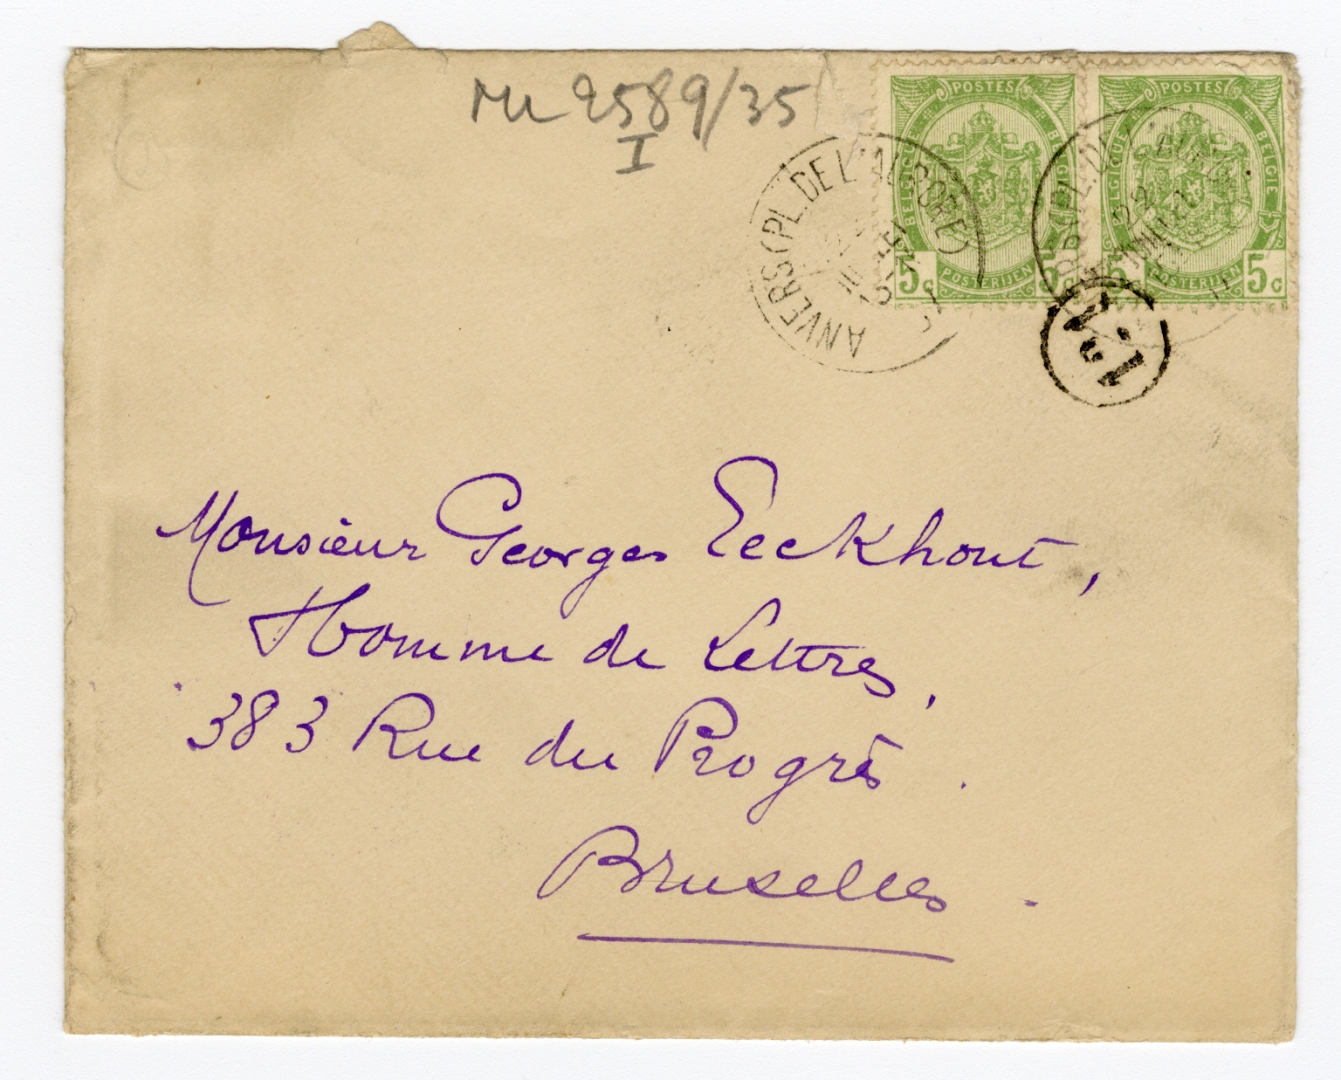 ML 2589/35
I
POSTES
BELGIQUE BELGIE
5c 5c
POSTERIJEN
POSTES
BELGIQUE BELGIE
5c 5c
POSTERIJEN
ANVERS (PL. DE L'AURORE)
Monsieur Georges Eeckhout,
Homme de Lettres,
383 Rue du Progrès.
Bruxelles.